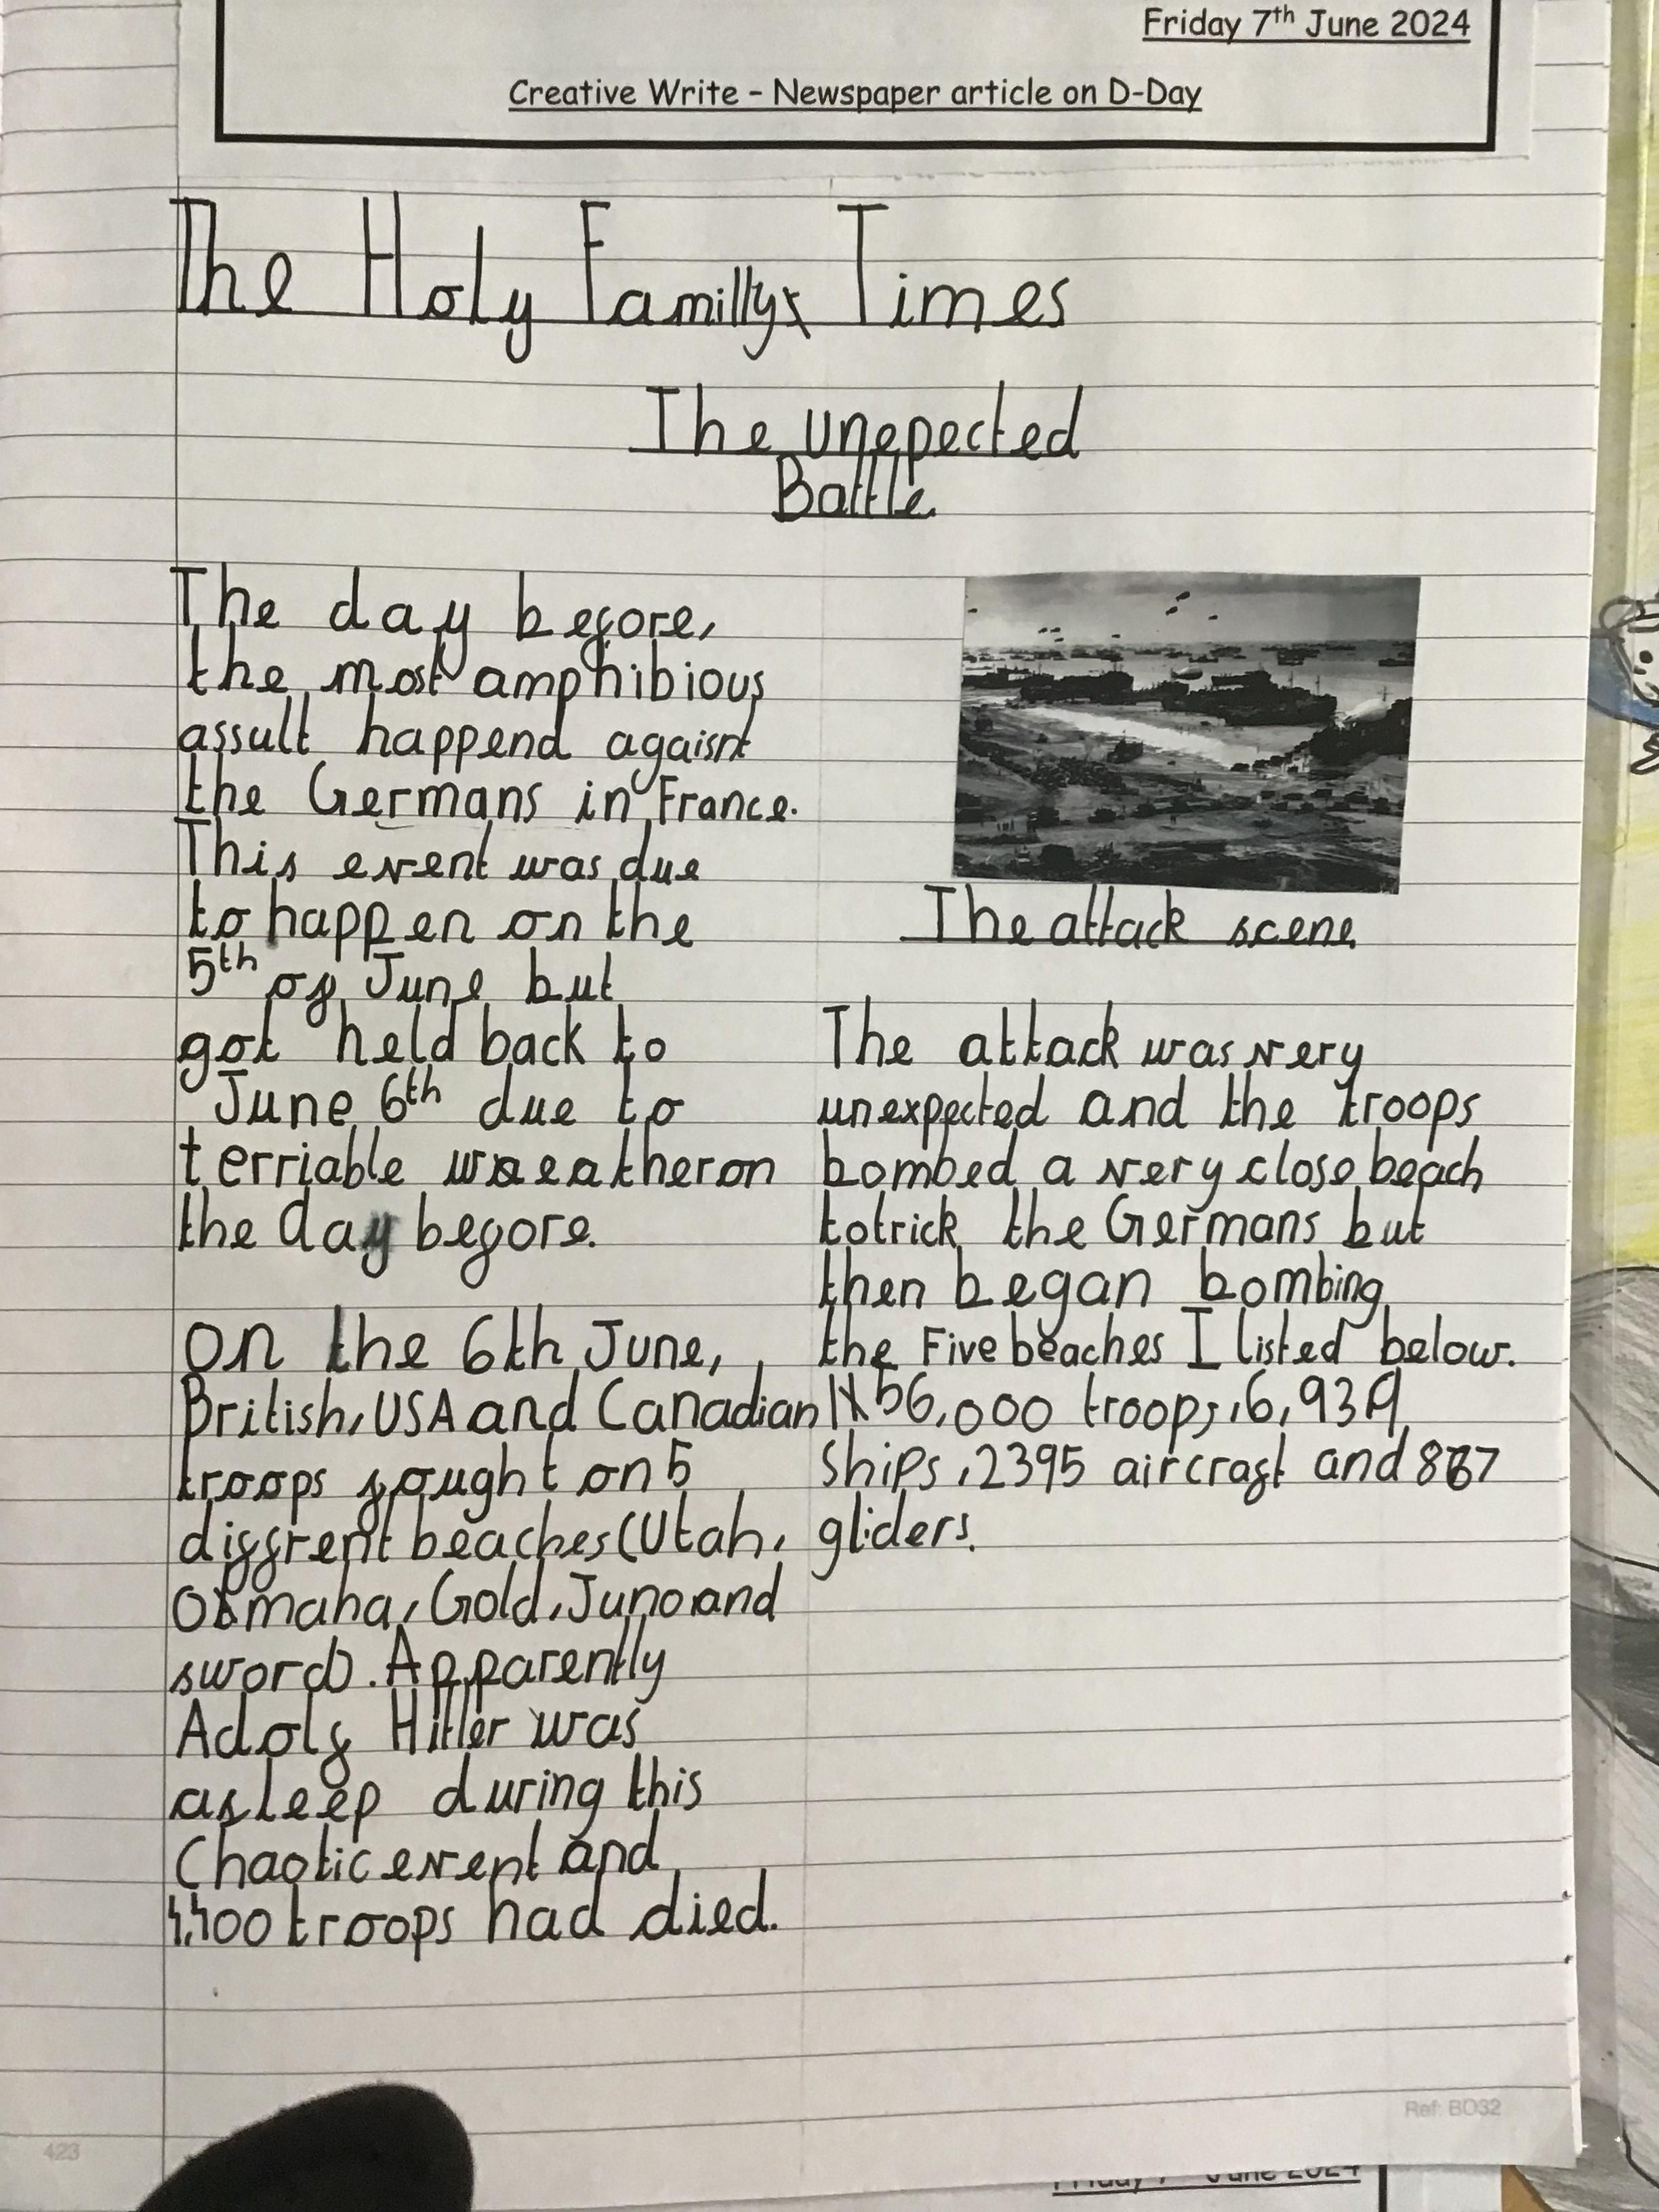 Friday 7th June 2024
Creative Write – Newspaper article on D-Day
The Holy Familly Times
The unepected
Battle
The day before,
the most amphibious
assult happend agaisnt
the Germans in France.
This event was due
to happen on the
5th of June but
got held back to
June 6th due to
terriable weather on
the day before.
On the 6th June,
British, USA and Canadian
troops fought on 5
diffrent beaches (Utah,
Omaha, Gold, Juno and
sword). Apparently
Adolf Hitler was
asleep during this
Chaotic event and
4,400 troops had died.
The attack scene
The attack was very
unexpected and the troops
bombed a very close beach
to trick the Germans but
then began bombing
the Five beaches I listed below.
156,000 troops, 6,939
ships, 2395 aircraft and 887
gliders.
Ref: BD32
423
Friday 7th June 2024